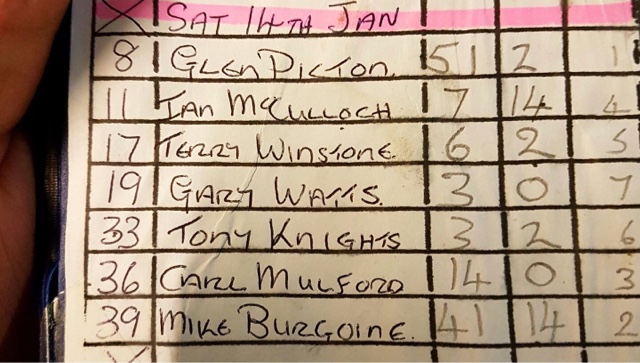 X SAT 14TH JAN
8 GLEN PICTON. 51 2 1
11 IAN MCCULLOCH 7 14 4
17 TERRY WINSTONE. 6 2 5
19 GARY WATTS. 3 0 7
33 TONY KNIGHTS 3 2 6
36 CARL MULFORD 14 0 3
39 MIKE BURGOINE. 41 14 2